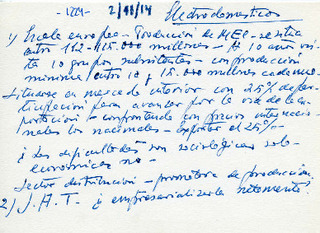 -1224- 2/10/14 Electrodomesticos
1) Escala europea - Producción de MEC - se sitúa
entre 112-115.000 millones - A 10 años vis
ta 10 grupos subsistentes - con producción
mínima entre 10 y 15.000 millones cada uno.
Situarse en mercado interior con 25% de par-
ticipación para avanzar por la vía de la ex-
portación - confrontando con precios internacio-
nales los nacionales - exportar el 25%-
¿ Las dificultades son sociológicas solo
económicas no -
Sector distribución - promotora de producción
2) J.A.T. ¿ empresarializarla netamente?